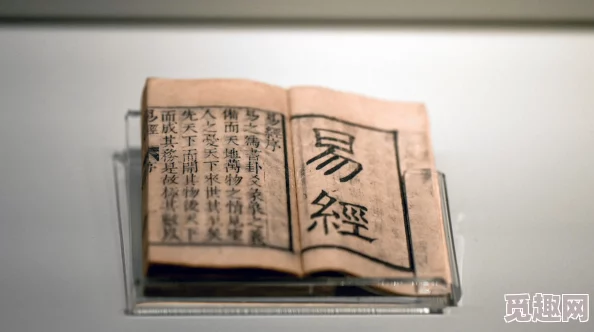 易經
易經序
易之爲書卦爻彖象之義
備而天地萬物之情見聖
人之憂天下來世其至矣
先天下而開其物後天下
而成其務是故極其數以
易經 序
觅趣网